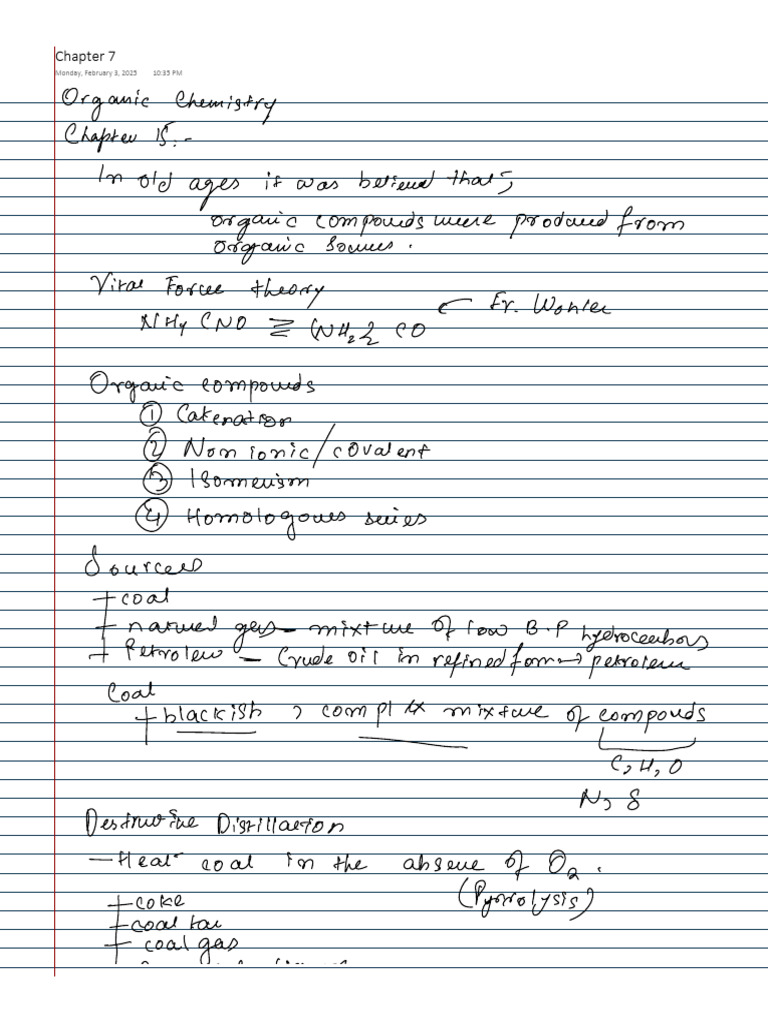 Chapter 7
Monday, February 3, 2025 10:35 PM
Organic Chemistry
Chapter 15:-
In old ages it was believed that,
organic compounds were produced from
organic sources.
Vital Force theory
Fr. Wohler
NH4 CNO ⇌ (NH2)2 CO
Organic compounds
① Catenation
② Non ionic/covalent
③ Isomerism
④ Homologoues series
Sources
coal
natural gas - mixture of low B.P hydrocarbons
Petroleum - Crude oil in refined form → petroleum
Coal
blackish, complex mixture of compounds
C, H, O
N, S
Destructive Distillation
- Heat coal in the absence of O2.
(Pyrrolysis)
coke
coal tar
coal gas